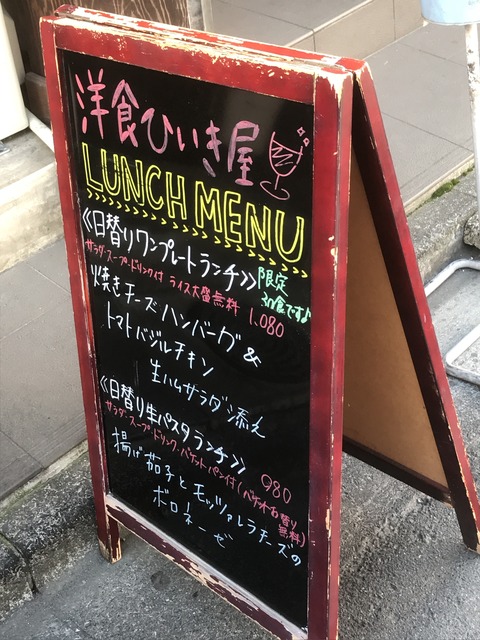 洋食ひいき屋
LUNCH MENU
《日替りワンプレートランチ》
限定
30食です♪
サラダ・スープ・ドリンク付 ライス大盛無料 1,080
焼きチーズハンバーグ &
トマトバジルチキン
生ハムサラダ添え
《日替り生パスタランチ》
サラダ・スープ・ドリンク・バケットパン付(バケットお替り無料) 980
揚げ茄子とモッツァレラチーズの
ボロネーゼ